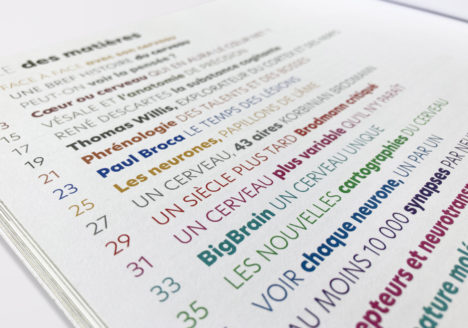 E des matières
FACE À FACE avec son cerveau
UNE BREF HISTOIRE DU cerveau
PEUT-ON voir la pensée ?
13 Cœur ou cerveau QUI EN AURA LE CŒUR NET ?
15 VÉSALE et l'anatomie DE PRÉCISION
17 RENÉ DESCARTES, la substance cogitante
19 Thomas Willis, EXPLORATEUR DU CORTEX ET DES NERFS
21 Phrénologie DES TALENTS ET DES BOSSES
23 Paul Broca LE TEMPS DES LÉSIONS
25 Les neurones, PAPILLONS DE L'ÂME
27 UN CERVEAU, 43 aires KORBINIAN BRODMANN
29 UN SIÈCLE PLUS TARD Brodmann critiqué
31 UN CERVEAU plus variable QU'IL N'Y PARAÎT
33 BigBrain UN CERVEAU UNIQUE
35 LES NOUVELLES cartographies DU CERVEAU
VOIR chaque neurone, UN PAR UN
AU MOINS 10 000 synapses PAR NEU
epteurs et neurotrans
ature mol